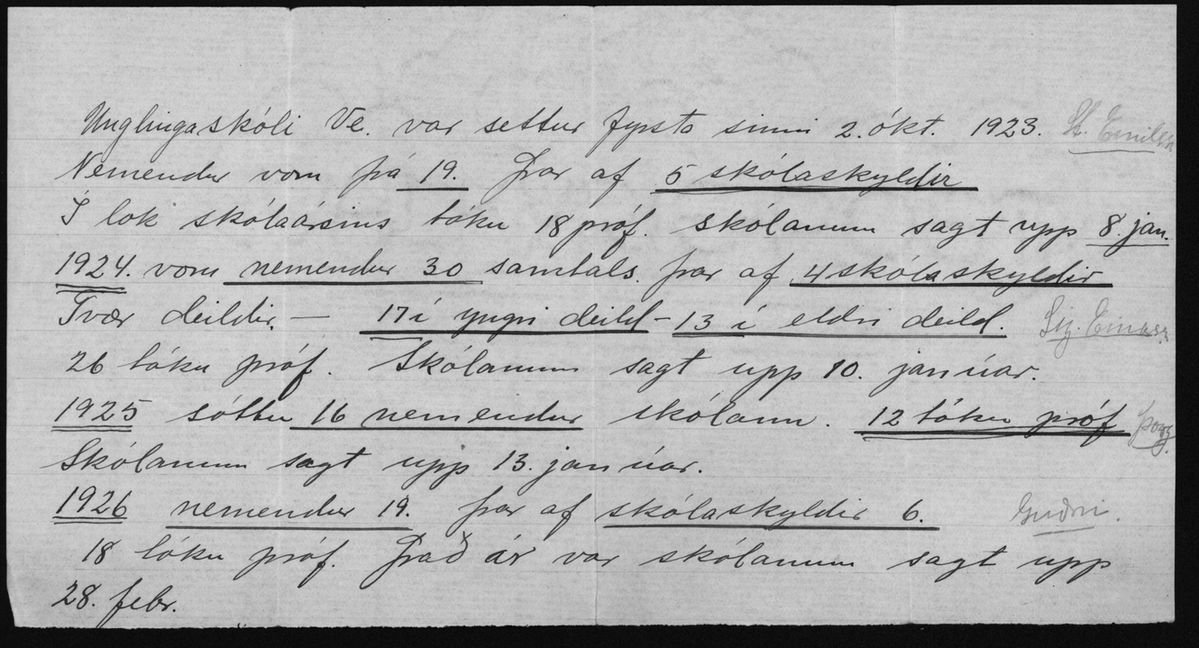 Unglingaskóli Ve. var settur fyrsta sinni 2. ókt. 1923. St. Emilsn
Nemendur voru þá 19. Þar af 5 skólaskyldir
Í lok skólaársins tóku 18 próf. skólanum sagt upp 8. jan.
1924. voru nemendur 30 samtals. þar af 4 skólaskyldir
Tvær deildir. – 17 í yngri deild – 13 í eldri deild. Sig. Einarss
26 tóku próf. Skólanum sagt upp 10. janúar.
1925 sóttu 16 nemendur skólann. 12 tóku próf Þorg.
Skólanum sagt upp 13. janúar.
1926 nemendur 19. þar af skólaskyldir 6. Guðni.
18 tóku próf. Það ár var skólanum sagt upp
28. febr.